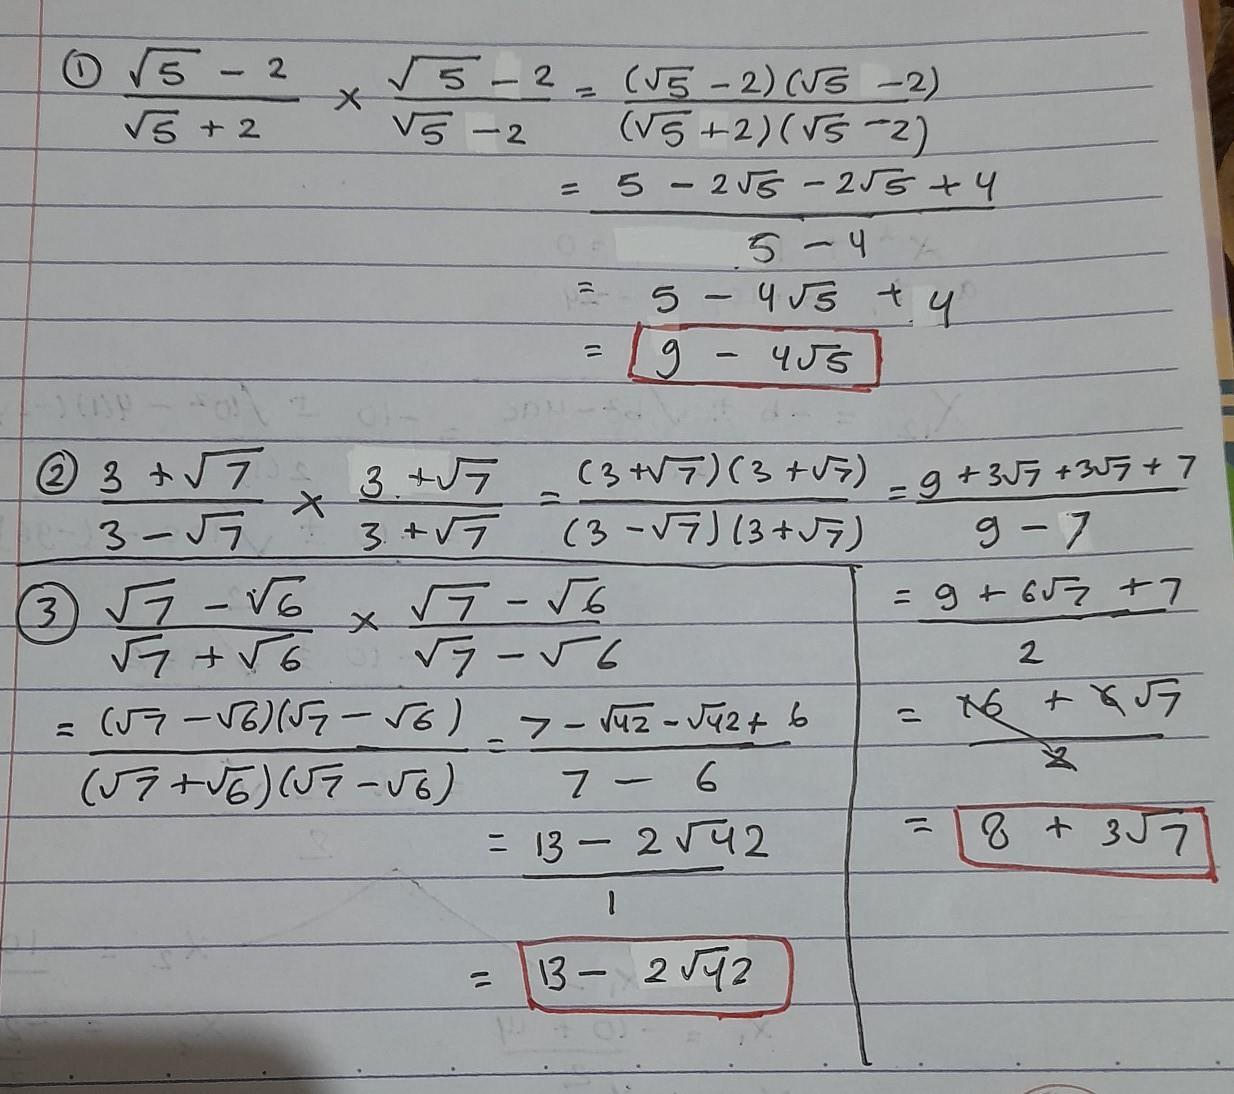 ① (√5 - 2)/(√5 + 2) × (√5 - 2)/(√5 - 2) = ((√5 - 2)(√5 - 2))/((√5 + 2)(√5 - 2))
= (5 - 2√5 - 2√5 + 4)/(5 - 4)
= 5 - 4√5 + 4
= 9 - 4√5
② (3 + √7)/(3 - √7) × (3 + √7)/(3 + √7) = ((3 + √7)(3 + √7))/((3 - √7)(3 + √7)) = (9 + 3√7 + 3√7 + 7)/(9 - 7)
= (9 + 6√7 + 7)/2
= (16 + 6√7)/2
= 8 + 3√7
③ (√7 - √6)/(√7 + √6) × (√7 - √6)/(√7 - √6)
= ((√7 - √6)(√7 - √6))/((√7 + √6)(√7 - √6)) = (7 - √42 - √42 + 6)/(7 - 6)
= (13 - 2√42)/1
= 13 - 2√42